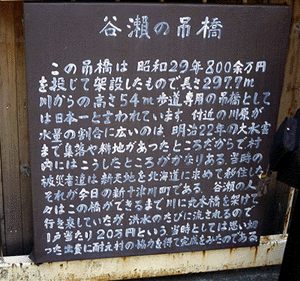 谷瀬の吊橋
この吊橋は 昭和29年800余万円
を投じて架設したもので長さ297.7m
川からの高さ54m歩道専用の吊橋として
は日本一と言われています 付近の川原が
水量の割合に広いのは、明治22年の大水害
まで集落や耕地があったところだからで村
内にはこうしたところがかなりある。当時の
被災者達は新天地を北海道に求めて移住し
それが今日の新十津川町である 谷瀬の人
々はこの橋ができるまで川に丸木橋を架けて
行き来していたが 洪水のたびに流されるので
1戸当たり20万円という 当時としては思い切
った出費に耐え村の協力を得て完成をみたのである